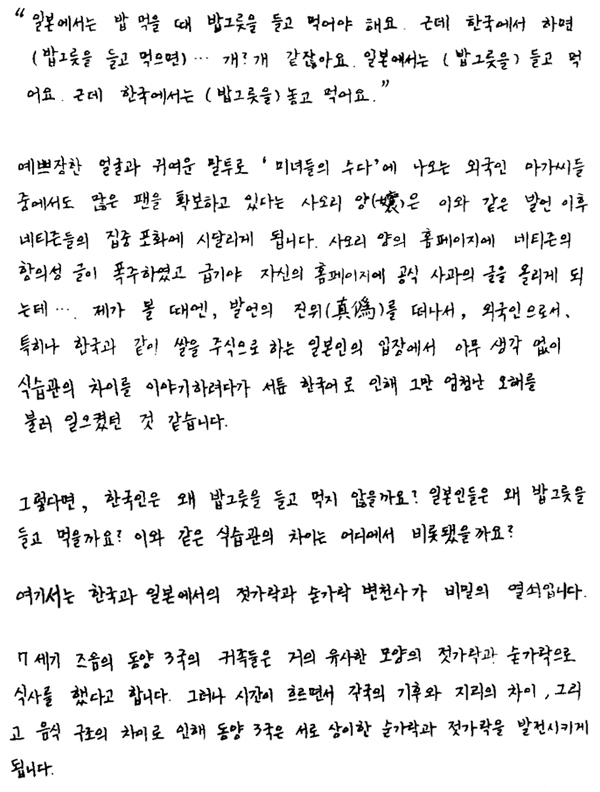 “일본에서는 밥 먹을 때 밥그릇을 들고 먹어야 해요. 근데 한국에서 하면
(밥그릇을 들고 먹으면)… 개? 개 같잖아요. 일본에서는 (밥그릇을) 들고 먹
어요. 근데 한국에서는 (밥그릇을) 놓고 먹어요.”
예쁘장한 얼굴과 귀여운 말투로 ‘미녀들의 수다’에 나오는 외국인 아가씨들
중에서도 많은 팬을 확보하고 있다는 사오리 양(孃)은 이와 같은 발언 이후
네티즌들의 집중 포화에 시달리게 됩니다. 사오리 양의 홈페이지에 네티즌의
항의성 글이 폭주하였고 급기야 자신의 홈페이지에 공식 사과의 글을 올리게 되
는데…. 제가 볼 때엔, 발언의 진위(真偽)를 떠나서, 외국인으로서,
특히나 한국과 같이 쌀을 주식으로 하는 일본인의 입장에서 아무 생각 없이
식습관의 차이를 이야기하려다가 서툰 한국어로 인해 그만 엄청난 오해를
불러 일으켰던 것 같습니다.
그렇다면, 한국인은 왜 밥그릇을 들고 먹지 않을까요? 일본인들은 왜 밥그릇을
들고 먹을까요? 이와 같은 식습관의 차이는 어디에서 비롯됐을까요?
여기서는 한국과 일본에서의 젓가락과 숟가락 변천사가 비밀의 열쇠입니다.
7세기 즈음의 동양 3국의 귀족들은 거의 유사한 모양의 젓가락과 숟가락으로
식사를 했다고 합니다. 그러나 시간이 흐르면서 각국의 기후와 지리의 차이, 그리
고 음식 구조의 차이로 인해 동양 3국은 서로 상이한 숟가락과 젓가락을 발전시키게
됩니다.